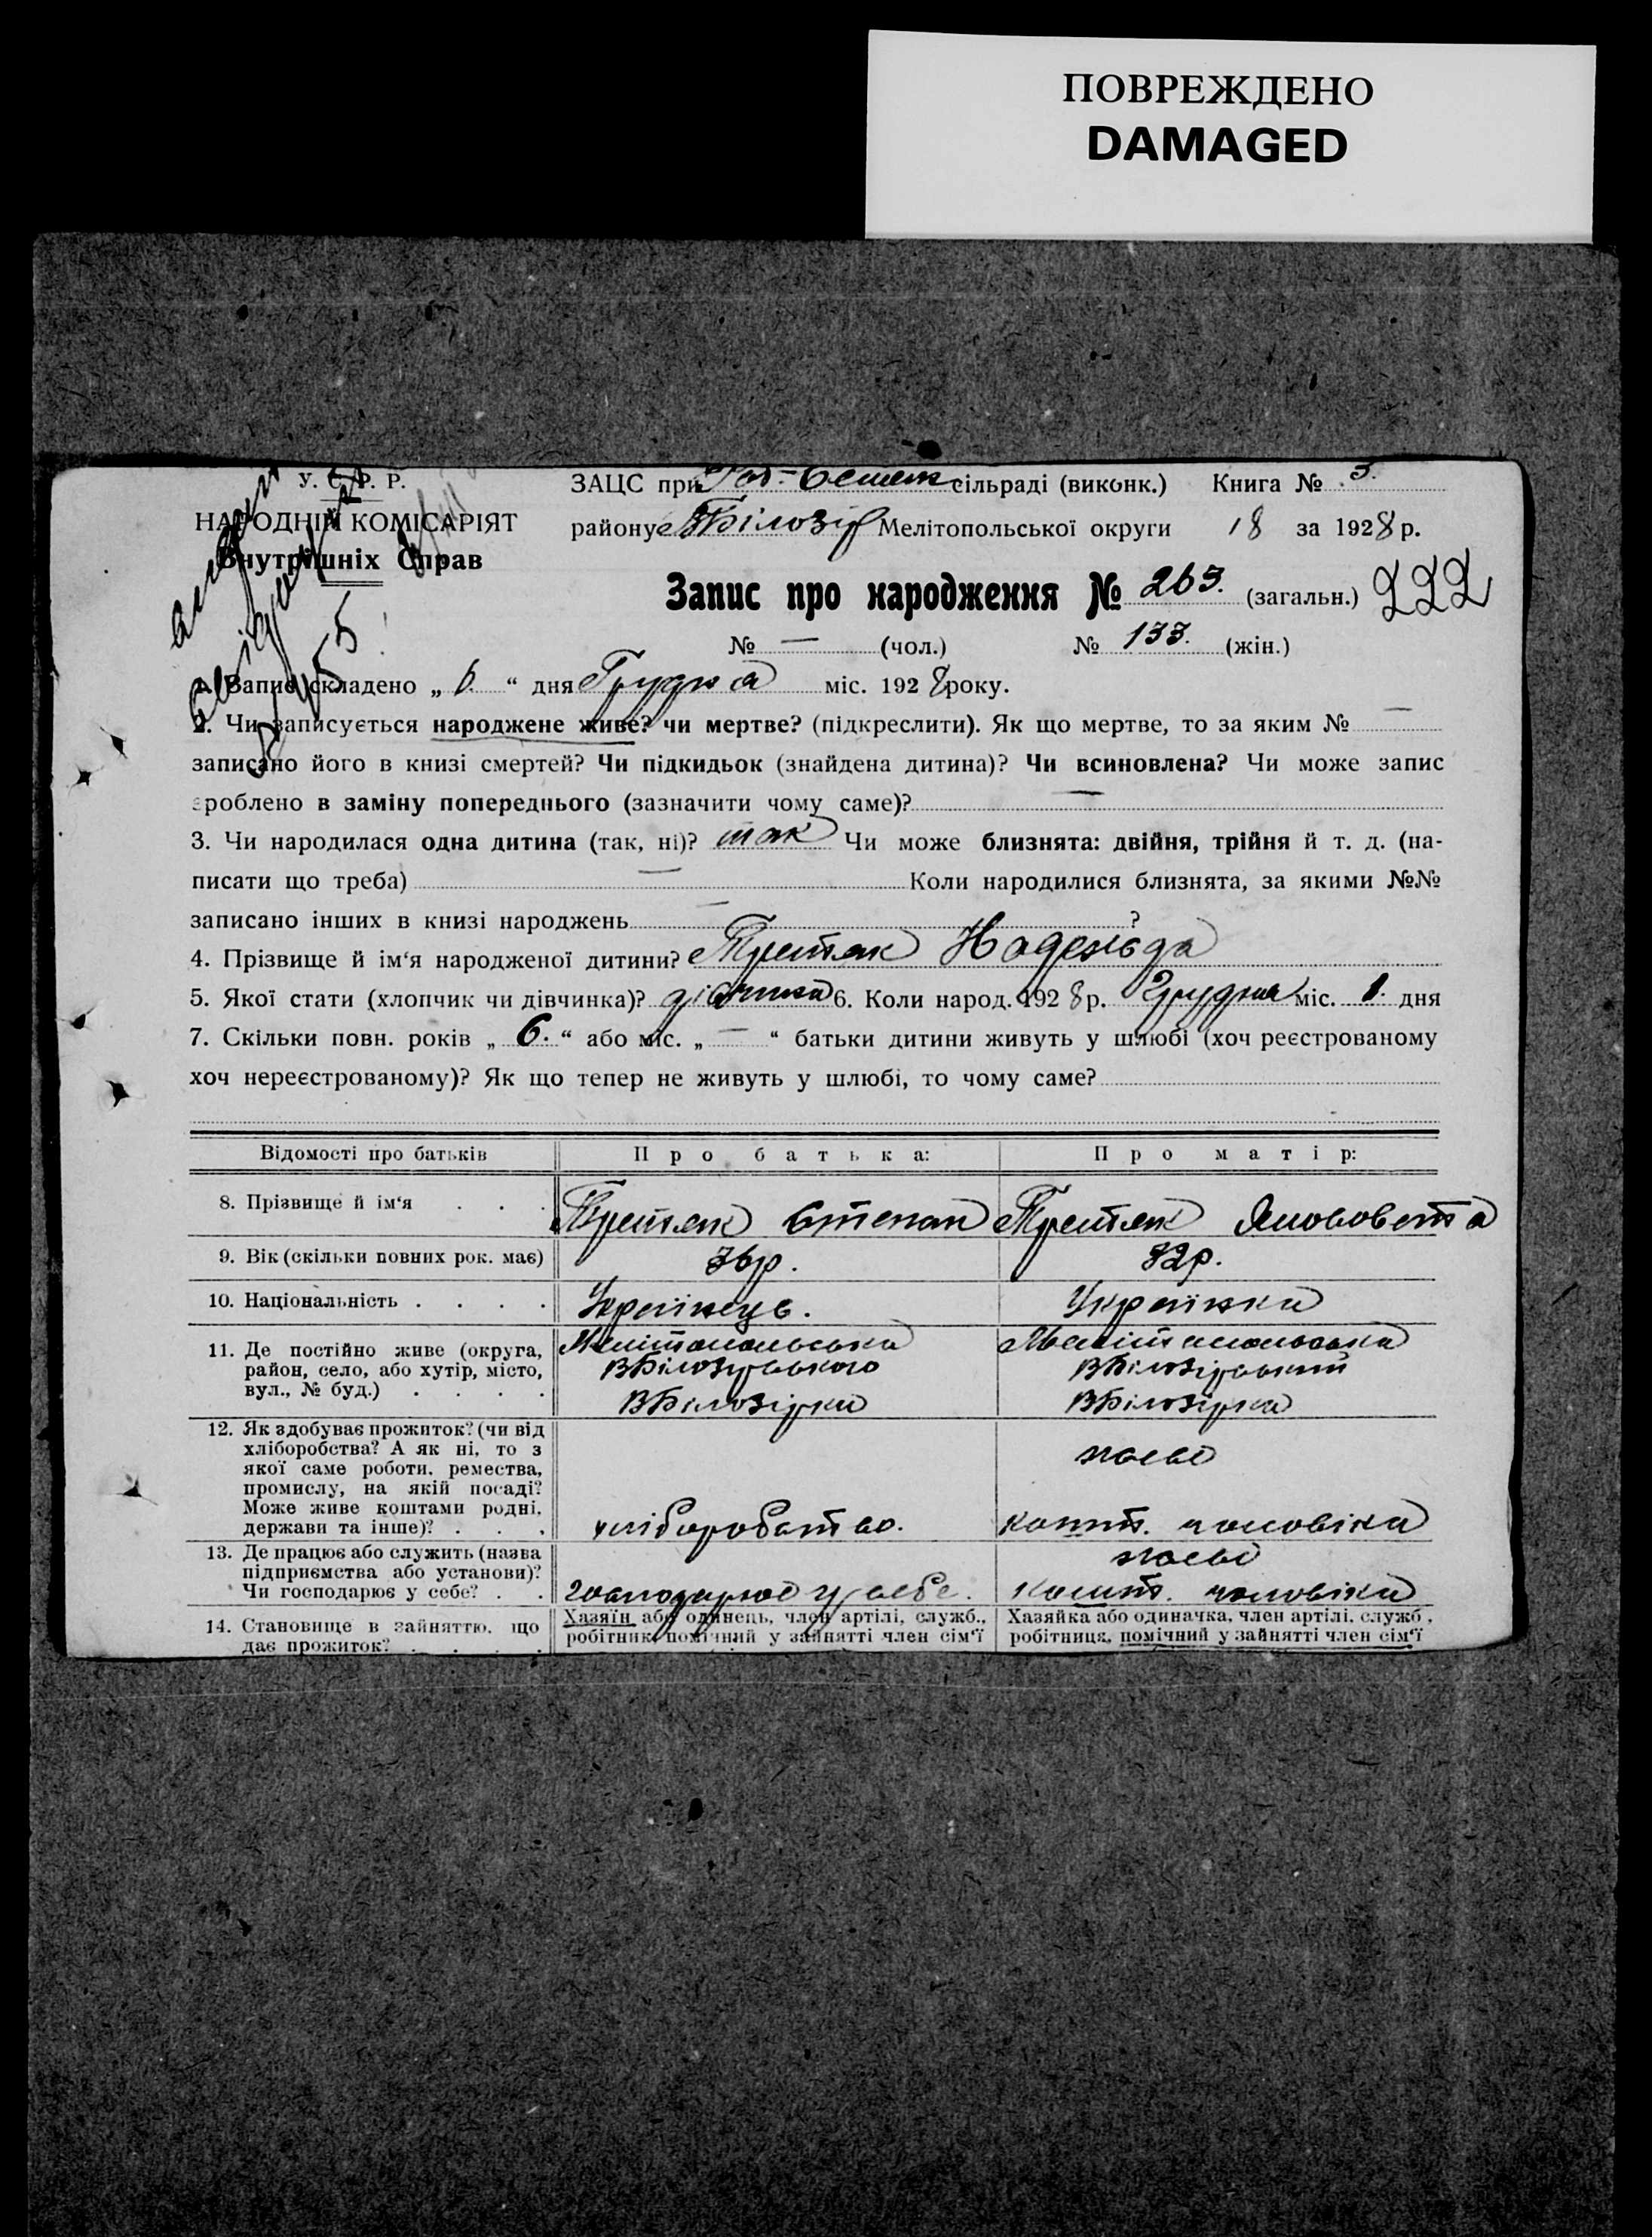 ПОВРЕЖДЕНО
DAMAGED
У. С. Р. Р.
НАРОДНІЙ КОМІСАРІЯТ
Внутрішніх Справ
ЗАЦС при сільраді (виконк.) Книга № 3.
району ВБілозір Мелітопольської округи 18 за 1928 р.
Запис про народження № 263. (загальн.) 222
№ — (чол.) № 133. (жін.)
1. Запис складено „ 6. “ дня Грудня міс. 1928 року.
2. Чи записується народжене живе? чи мертве? (підкреслити). Як що мертве, то за яким № —
записано його в книзі смертей? Чи підкидьок (знайдена дитина)? Чи всиновлена? Чи може запис
зроблено в заміну попереднього (зазначити чому саме)? —
3. Чи народилася одна дитина (так, ні)? так Чи може близнята: двійня, трійня й т. д. (на-
писати що треба) — Коли народилися близнята, за якими №№
записано інших в книзі народжень — ?
4. Прізвище й ім‘я народженої дитини? Третяк Надежда
5. Якої стати (хлопчик чи дівчинка)? дівчинка 6. Коли народ. 1928 р. Грудня міс. 1. дня
7. Скільки повн. років „ 6. “ або міс. „ — “ батьки дитини живуть у шлюбі (хоч реєстрованому
хоч нереєстрованому)? Як що тепер не живуть у шлюбі, то чому саме?
Відомості про батьків Про батька: Про матір:
8. Прізвище й ім‘я . . . Третяк Степан Третяк
9. Вік (скільки повних рок. має) 36р. 32р.
10. Національність . . . . Українець. Українка
11. Де постійно живе (округа, район, село, або хутір, місто, вул., № буд.) . . . .
Мелітопольська
ВБілозірського
ВБілозірки
Мелітопольська
ВБілозірський
ВБілозірка
12. Як здобуває прожиток? (чи від хліборобства? А як ні, то з якої саме роботи, ремества, промислу, на якій посаді? Може живе коштами родні, держави та інше)? . . .
хліборобство.
кошт. чоловіка
13. Де працює або служить (назва підприємства або установи)? Чи господарює у себе? . .
господарює у себе.
кошт. чоловіка
14. Становище в зайняттю, що дає прожиток? . . . .
Хазяїн або одинець, член артілі, служб., робітник, помічний у зайнятті член сім‘ї
Хазяйка або одиначка, член артілі, служб., робітниця, помічний у зайнятті член сім‘ї